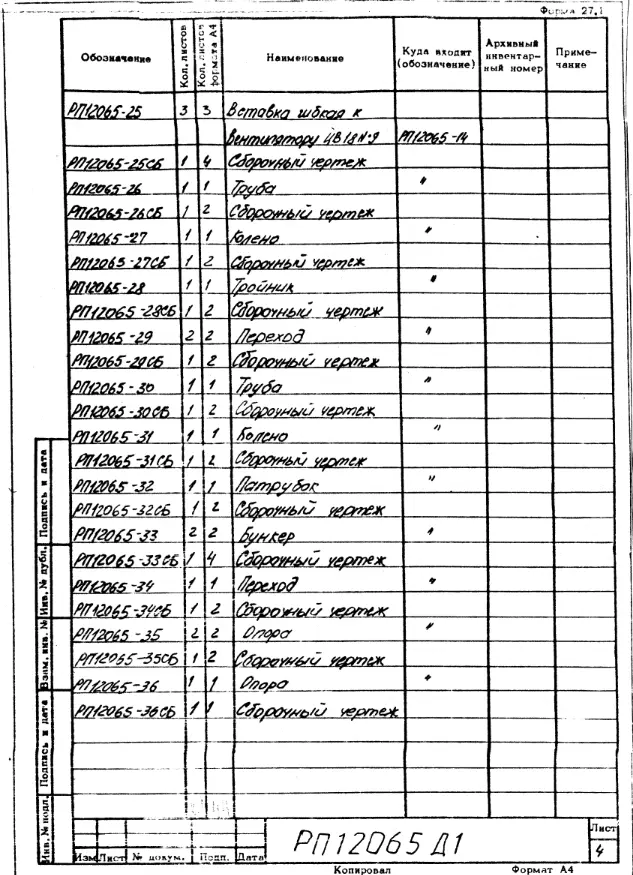 Форма 27.1
Обозначение Кол. листов Кол. листов формата А4 Наименование Куда входит (обозначение) Архивный инвентарный номер Примечание
РП12065-25 3 3 Вставка гибкая к
вентилятору РП12065-14
РП12065-25СБ 1 4 Сборочный чертеж
РП12065-26 1 1 Труба "
РП12065-26СБ 1 2 Сборочный чертеж
РП12065-27 1 1 Колено "
РП12065-27СБ 1 2 Сборочный чертеж
РП12065-28 1 1 Тройник "
РП12065-28СБ 1 2 Сборочный чертеж
РП12065-29 2 2 Переход "
РП12065-29СБ 1 2 Сборочный чертеж
РП12065-30 1 1 Труба "
РП12065-30СБ 1 2 Сборочный чертеж
РП12065-31 1 1 Колено "
РП12065-31СБ 1 2 Сборочный чертеж
РП12065-32 1 1 Патрубок "
РП12065-32СБ 1 2 Сборочный чертеж
РП12065-33 2 2 Бункер "
РП12065-33СБ 1 4 Сборочный чертеж
РП12065-34 1 1 Переход "
РП12065-34СБ 1 2 Сборочный чертеж
РП12065-35 2 2 Опора "
РП12065-35СБ 1 2 Сборочный чертеж
РП12065-36 1 1 Опора "
РП12065-36СБ 1 1 Сборочный чертеж
Подпись и дата
Инв. № дубл.
Взам. инв. №
Подпись и дата
Инв. № подл.
Изм Лист № докум. Подп. Дата
РП12065 Д1
Лист
4
Копировал Формат А4